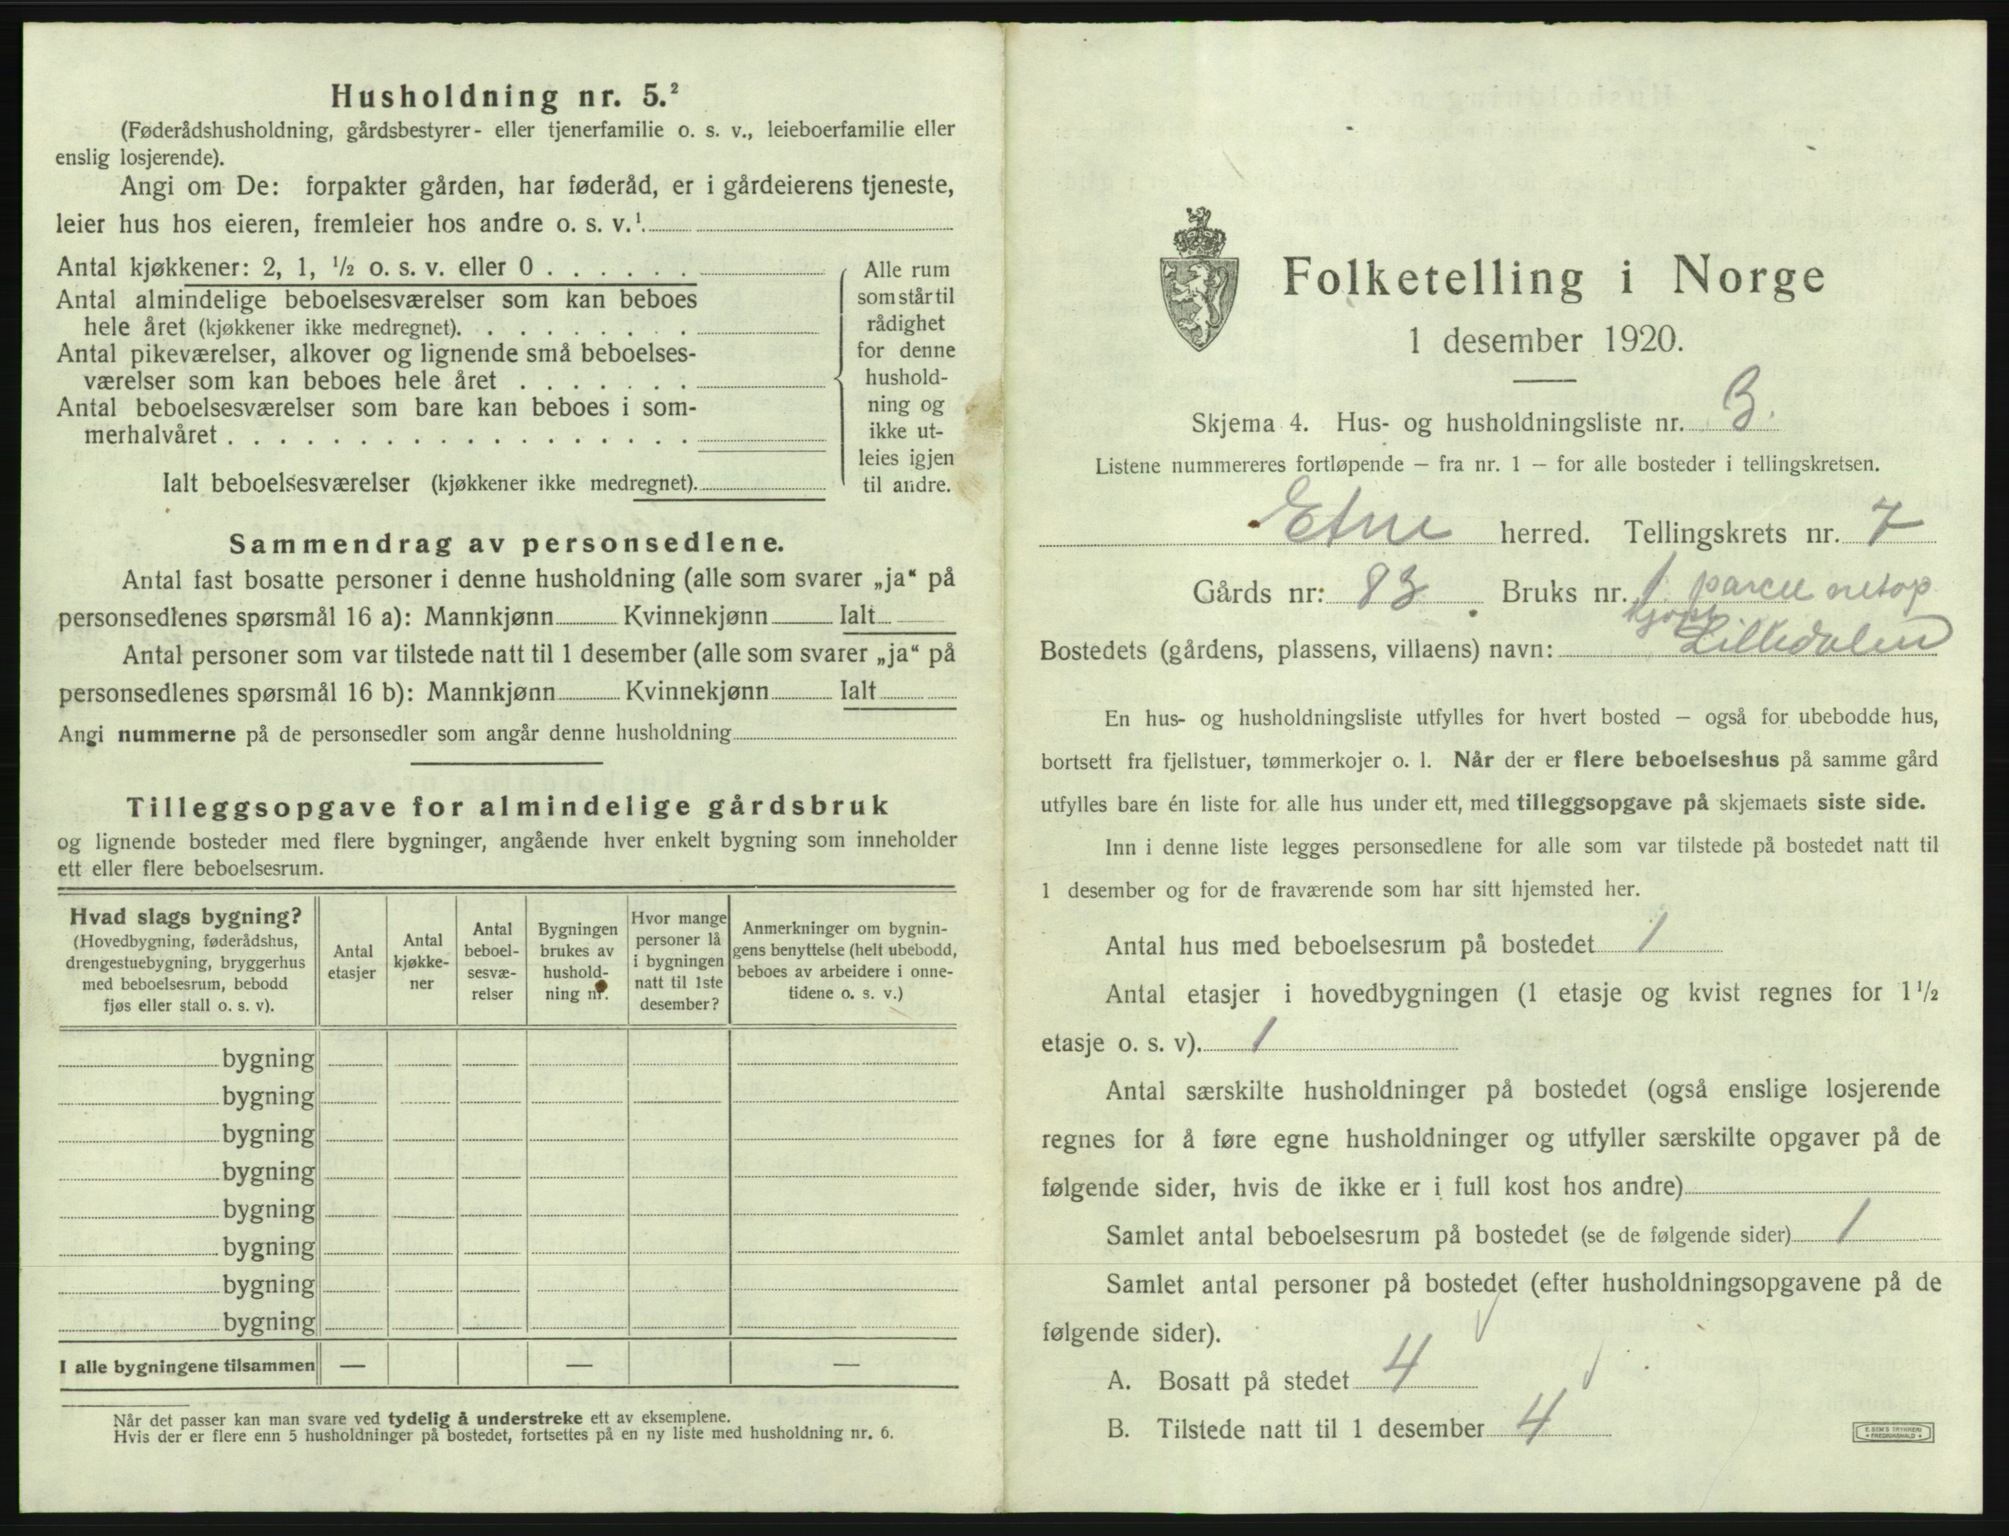 Husholdning nr. 5.²
(Føderådshusholdning, gårdsbestyrer- eller tjenerfamilie o. s. v., leieboerfamilie eller
enslig losjerende).
Angi om De: forpakter gården, har føderåd, er i gårdeierens tjeneste,
leier hus hos eieren, fremleier hos andre o. s. v.¹
Antal kjøkkener: 2, 1, ½ o. s. v. eller 0 . . . . . .
Antal almindelige beboelsesværelser som kan beboes
hele året (kjøkkener ikke medregnet). . . . . . . . .
Antal pikeværelser, alkover og lignende små beboelses-
værelser som kan beboes hele året . . . . . . .
Antal beboelsesværelser som bare kan beboes i som-
merhalvåret . . . . . . . . . . . . . . . . . .
Ialt beboelsesværelser (kjøkkener ikke medregnet).
Alle rum
som står til
rådighet
for denne
hushold-
ning og
ikke ut-
leies igjen
til andre.
Sammendrag av personsedlene.
Antal fast bosatte personer i denne husholdning (alle som svarer „ja“ på
personsedlenes spørsmål 16 a): Mannkjønn Kvinnekjønn Ialt
Antal personer som var tilstede natt til 1 desember (alle som svarer „ja“ på
personsedlenes spørsmål 16 b): Mannkjønn Kvinnekjønn Ialt
Angi nummerne på de personsedler som angår denne husholdning
Tilleggsopgave for almindelige gårdsbruk
og lignende bosteder med flere bygninger, angående hver enkelt bygning som inneholder
ett eller flere beboelsesrum.
Hvad slags bygning?
(Hovedbygning, føderådshus,
drengestuebygning, bryggerhus
med beboelsesrum, bebodd
fjøs eller stall o. s. v).
Antal
etasjer
Antal
kjøkke-
ner
Antal
beboel-
sesvæ-
relser
Bygningen
brukes av
hushold-
ning nr.
Hvor mange
personer lå
i bygningen
natt til 1ste
desember?
Anmerkninger om bygnin-
gens benyttelse (helt ubebodd,
beboes av arbeidere i onne-
tidene o. s. v.)
bygning
bygning
bygning
bygning
bygning
bygning
bygning
bygning
I alle bygningene tilsammen — — —
Når det passer kan man svare ved tydelig å understreke ett av eksemplene.
Hvis der er flere enn 5 husholdninger på bostedet, fortsettes på en ny liste med husholdning nr. 6.
Folketelling i Norge
1 desember 1920.
Skjema 4. Hus- og husholdningsliste nr. 3.
Listene nummereres fortløpende – fra nr. 1 – for alle bosteder i tellingskretsen.
Etne herred. Tellingskrets nr. 7
Gårds nr: 83 Bruks nr. 1 parcel netop
kjøpt
Bostedets (gårdens, plassens, villaens) navn: Lilledalen
En hus- og husholdningsliste utfylles for hvert bosted – også for ubebodde hus,
bortsett fra fjellstuer, tømmerkojer o. l. Når der er flere beboelseshus på samme gård
utfylles bare én liste for alle hus under ett, med tilleggsopgave på skjemaets siste side.
Inn i denne liste legges personsedlene for alle som var tilstede på bostedet natt til
1 desember og for de fraværende som har sitt hjemsted her.
Antal hus med beboelsesrum på bostedet 1
Antal etasjer i hovedbygningen (1 etasje og kvist regnes for 1½
etasje o. s. v). 1
Antal særskilte husholdninger på bostedet (også enslige losjerende
regnes for å føre egne husholdninger og utfyller særskilte opgaver på de
følgende sider, hvis de ikke er i full kost hos andre)
Samlet antal beboelsesrum på bostedet (se de følgende sider) 1
Samlet antal personer på bostedet (efter husholdningsopgavene på de
følgende sider).
A. Bosatt på stedet 4
B. Tilstede natt til 1 desember 4
E. SEM'S TRYKKERI
• FREDRIKSHALD •